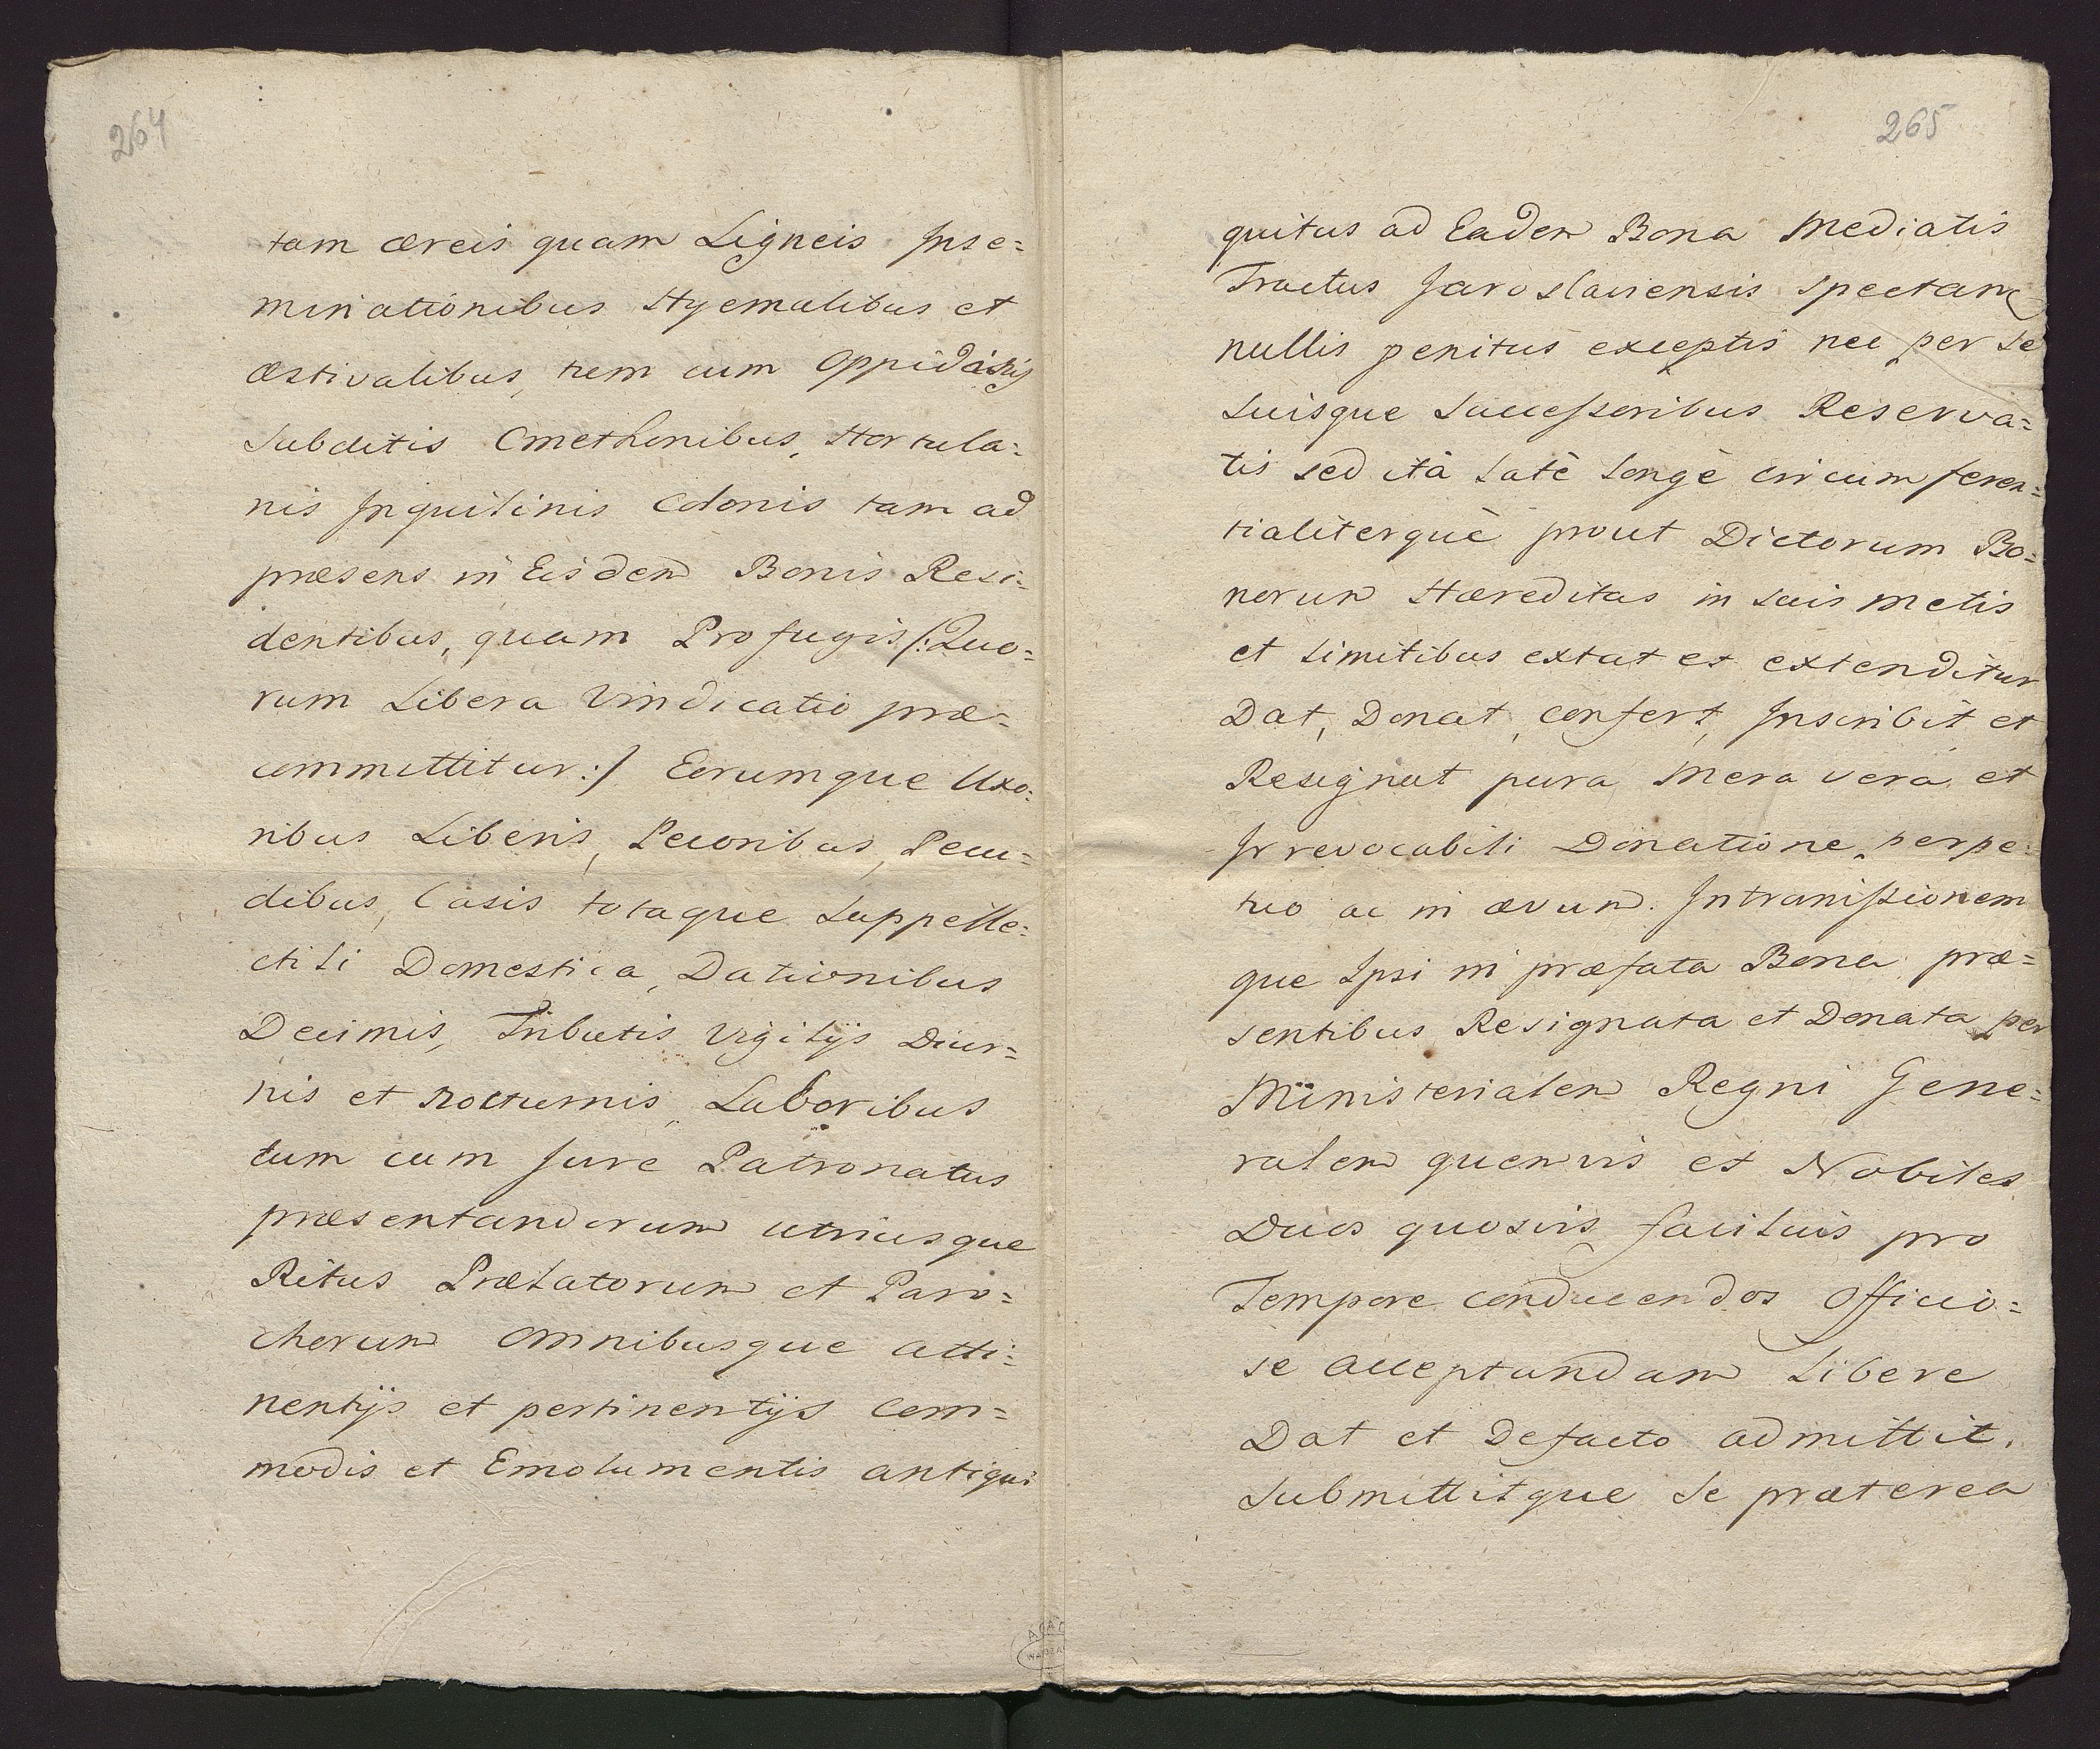 264
tam æreis quam Ligneis Inse=
minationibus Hyemalibus et
æstivalibus, tum cum Oppidanis
Subditis Cmethonibus, Hortula=
nis Inquilinis Colonis tam ad
præsens in Eisdem Bonis Resi=
dentibus, quam Profugis /: Quo=
rum Libera Vindicatio præ=
committitur :/ Eorumque Uxo=
ribus Liberis, Pecoribus, Pecu=
dibus, Casis totaque Suppelle=
ctili Domestica, Dationibus
Decimis, Tributis Vigilijs Diur=
nis et Nocturnis, Laboribus
tum cum Jure Patronatus
præsentandorum utriusque
Ritus Prælatorum et Paro=
chorum Omnibusque atti=
nentijs et pertinentijs Com=
modis et Emolumentis antiqui
265
quitus ad Eadem Bona Mediatis
Tractus Jaroslaviensis spectan
nullis penitus exceptis nec per se
Suisque Successoribus Reserva=
tis sed ità latè longè circum feren=
tialiterquè prout Dictorum Bo=
norum Hæreditas in suis metis
et limitibus extat et extenditur
Dat, Donat, confert, Inscribit et
Resignat pura Mera vera et
Irrevocabili Donatione, perpe=
tuo ac in ævum. Intromissionem
que Ipsi in præfata Bona præ=
sentibus Resignata et Donata per
Ministerialem Regni Gene=
ralem quemvis et Nobiles
Duos quosvis facilius pro
Tempore conducendos Officio=
se acceptandam Libere
Dat et Defacto admittit.
Submittitque Se præterea